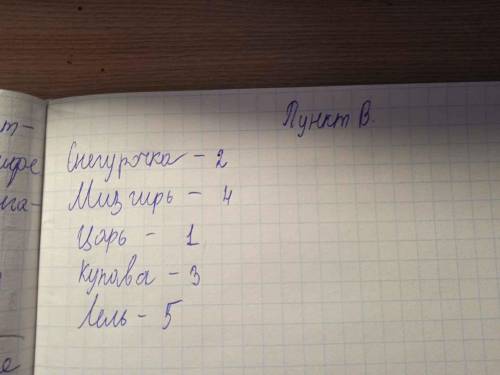 Пункт В.
Снегурочка - 2
Мизгирь - 4
Царь - 1
Купава - 3
Лель - 5